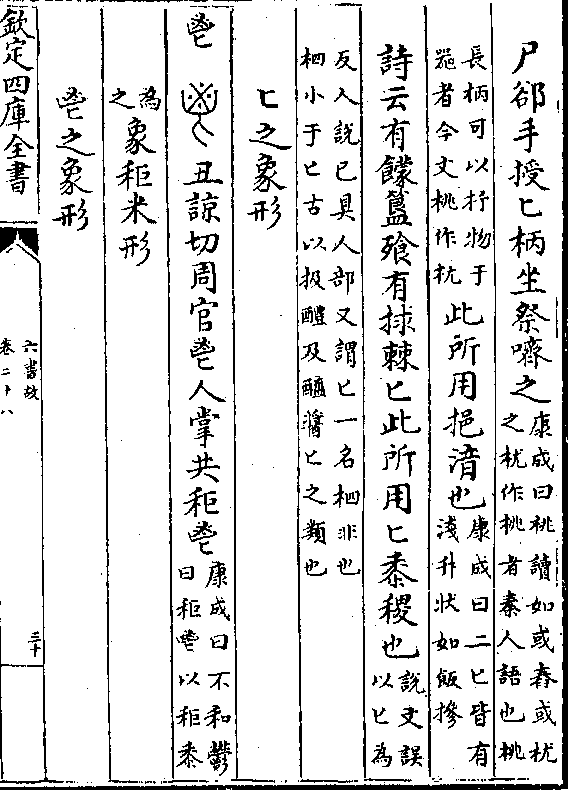 尸郤手授匕柄坐祭嚌之康成曰桃讀如或舂或枕
之枕作桃者秦人語也桃
長柄可以抒物于
器者今文桃作抗此所用挹湇也康成曰二匕皆有
淺升狀如飯摻
詩云有饛簋飱有捄棘匕此所用匕黍稷也説文誤
以匕為
反人説已具人部又謂匕一名柶非也
柶小于匕古以扱醴及醢醬匕之類也
匕之象形
鬯 丑諒切周官鬯人掌共秬鬯康成曰不和鬱
曰秬鬯以秬黍
為
之象秬米形
鬯之象形
欽定四庫全書
六書故
卷二十八
三十